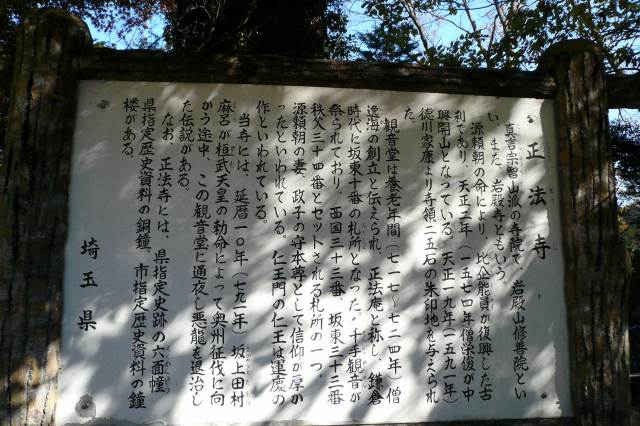 正法寺
真言宗智山派の寺院で、岩殿山修善院とい
い、また、岩殿寺ともいう。
源頼朝の命により、比企能員が復興した古
刹であり、天正二年（一五七四年）僧栄俊が中
興開山となっている。天正一九年（一五九一年）
徳川家康より寺領二五石の朱印地を与えられ
た。
観音堂は養老年間（七一七〜七二四年）僧
逸海の創立と伝えられ、正法庵と称し、鎌倉
時代に坂東十番の札所となった。千手観音が
祭られており、西国三十三番、坂東三十三番
秩父三十四番とセットされる札所の一つ。
源頼朝の妻、政子の守本尊として信仰が厚か
ったといわれている。仁王門の仁王は運慶の
作といわれている。
当寺には、延暦一〇年（七九一年）坂上田村
麻呂が桓武天皇の勅命によって奥州征伐に向
かう途中、この観音堂に通夜し悪龍を退治し
た伝説がある。
なお、正法寺には、県指定史跡の六面幢、
県指定歴史資料の銅鐘、市指定歴史資料の鐘
楼がある。
埼玉県